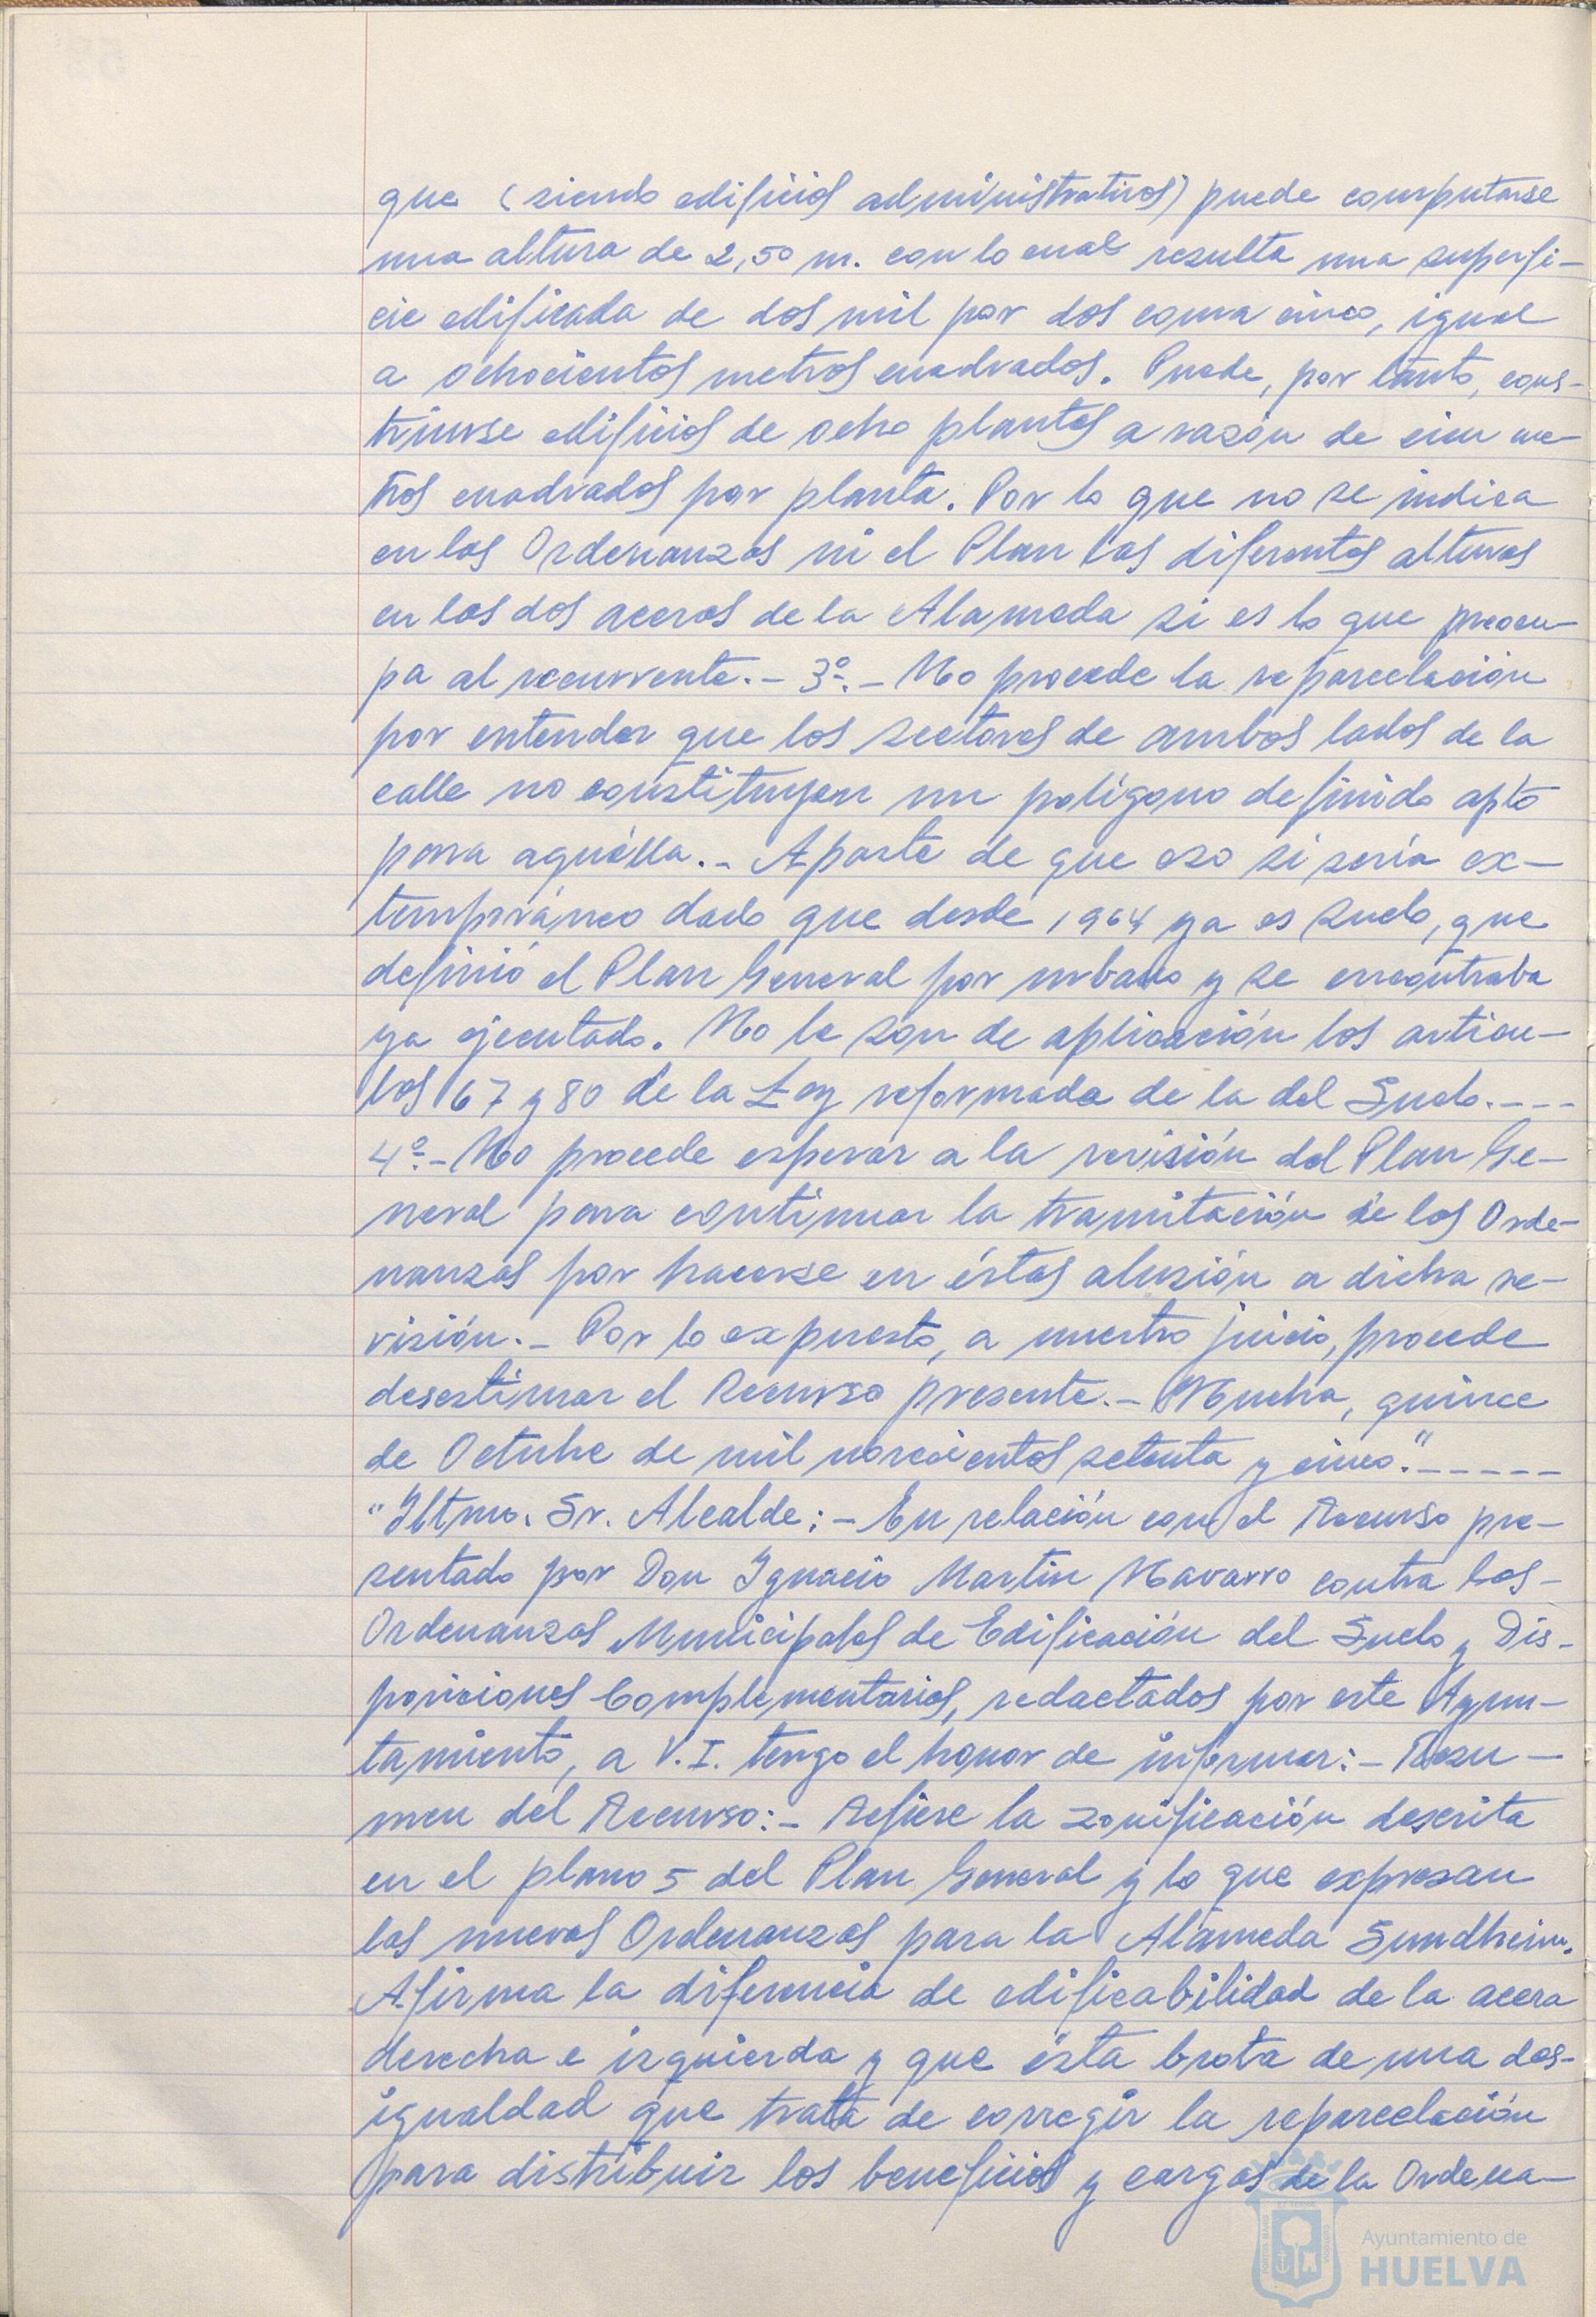 que (siendo edificios administrativos) puede computarse
una altura de 2,50 m. con lo cual resulta una superfi-
cie edificada de dos mil por dos coma cinco, igual
a ochocientos metros cuadrados. Puede, por tanto, cons-
truirse edificios de ocho plantas a razón de cien me-
tros cuadrados por planta. Por lo que no se indica
en las Ordenanzas ni el Plan las diferentes alturas
en las dos aceras de la Alameda si es lo que preocu-
pa al recurrente.- 3º.- No procede la reparcelación
por entender que los sectores de ambos lados de la
calle no constituyen un polígono definido apto
para aquélla.- Aparte de que eso si sería ex-
temporáneo dado que desde 1964 ya es suelo, que
definió el Plan General por urbano y se encontraba
ya ejecutado. No le son de aplicación los artícu-
los 67 y 80 de la Ley reformada de la del Suelo.---
4º.- No procede esperar a la revisión del Plan Ge-
neral para continuar la tramitación de las Orde-
nanzas por hacerse en éstas alusión a dicha re-
visión.- Por lo expuesto, a nuestro juicio, procede
desestimar el Recurso presente.- Huelva, quince
de Octubre de mil novecientos setenta y cinco."-----
"Iltmo. Sr. Alcalde:- En relación con el Recurso pre-
sentado por Don Ignacio Martin Navarro contra las-
Ordenanzas Municipales de Edificación del Suelo y Dis-
posiciones Complementarias, redactados por este Ayun-
tamiento, a V.I. tengo el honor de informar:- Resu-
men del Recurso:- Refiere la zonificación descrita
en el plano 5 del Plan General y lo que expresan
las nuevas Ordenanzas para la Alameda Sundheim.
Afirma la diferencia de edificabilidad de la acera
derecha e izquierda y que ésta brota de una des-
igualdad que trata de corregir la reparcelación
para distribuir los beneficios y cargas de la Ordena-
Ayuntamiento de
HUELVA